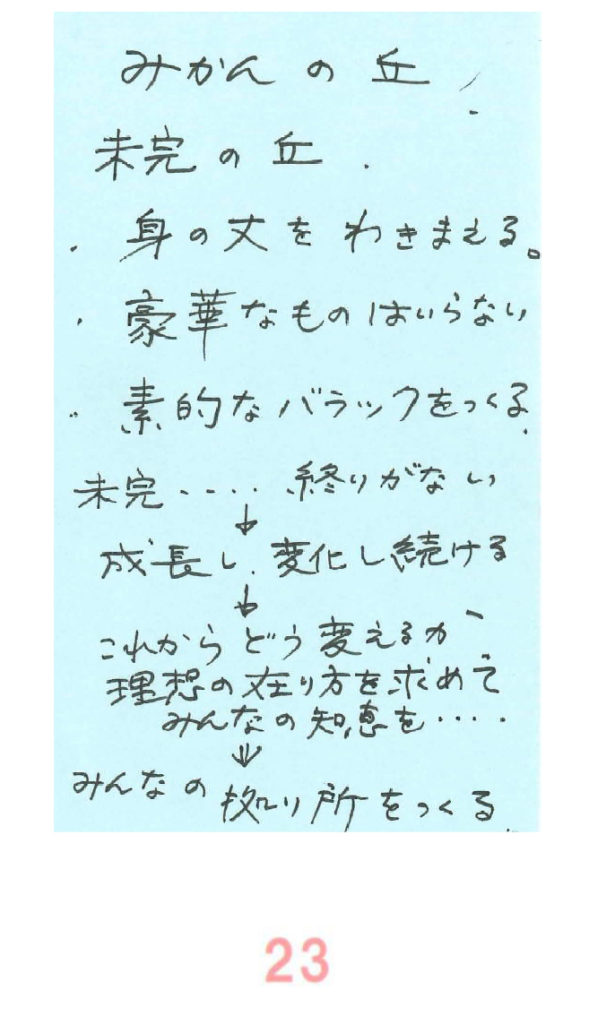 みかんの丘
未完の丘.
・身の丈をわきまえる。
・豪華なものはいらない
・素的なバラックをつくる.
未完‥‥終りがない
↓
成長し、変化し続ける
↓
これからどう変えるか
理想の在り方を求めて
みんなの知恵を‥‥
⇓
みんなの拠り所をつくる.
23